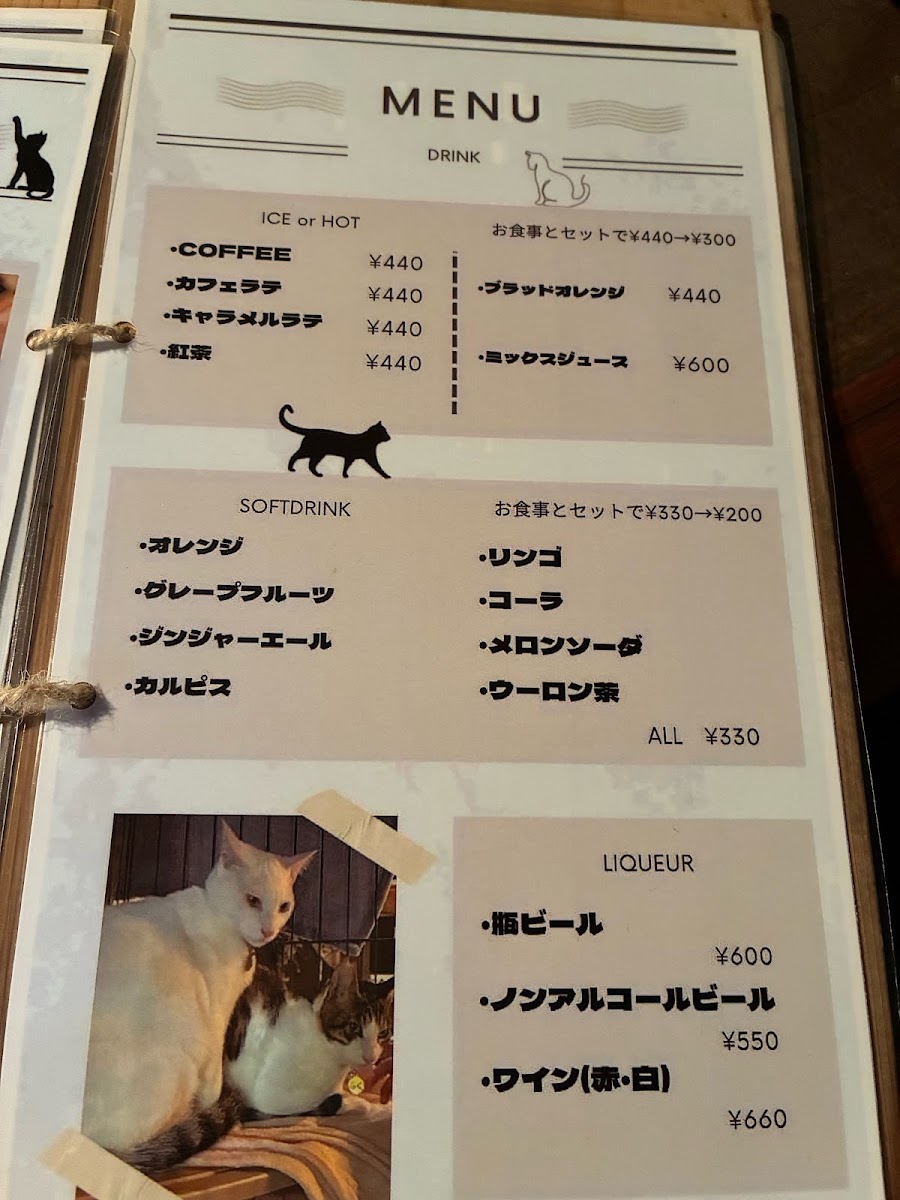 MENU
DRINK
ICE or HOT
・COFFEE ¥440
・カフェラテ ¥440
・キャラメルラテ ¥440
・紅茶 ¥440
お食事とセットで¥440→¥300
・ブラッドオレンジ ¥440
・ミックスジュース ¥600
SOFTDRINK
・オレンジ
・グレープフルーツ
・ジンジャーエール
・カルピス
お食事とセットで¥330→¥200
・リンゴ
・コーラ
・メロンソーダ
・ウーロン茶
ALL ¥330
LIQUEUR
・瓶ビール
¥600
・ノンアルコールビール
¥550
・ワイン(赤・白)
¥660